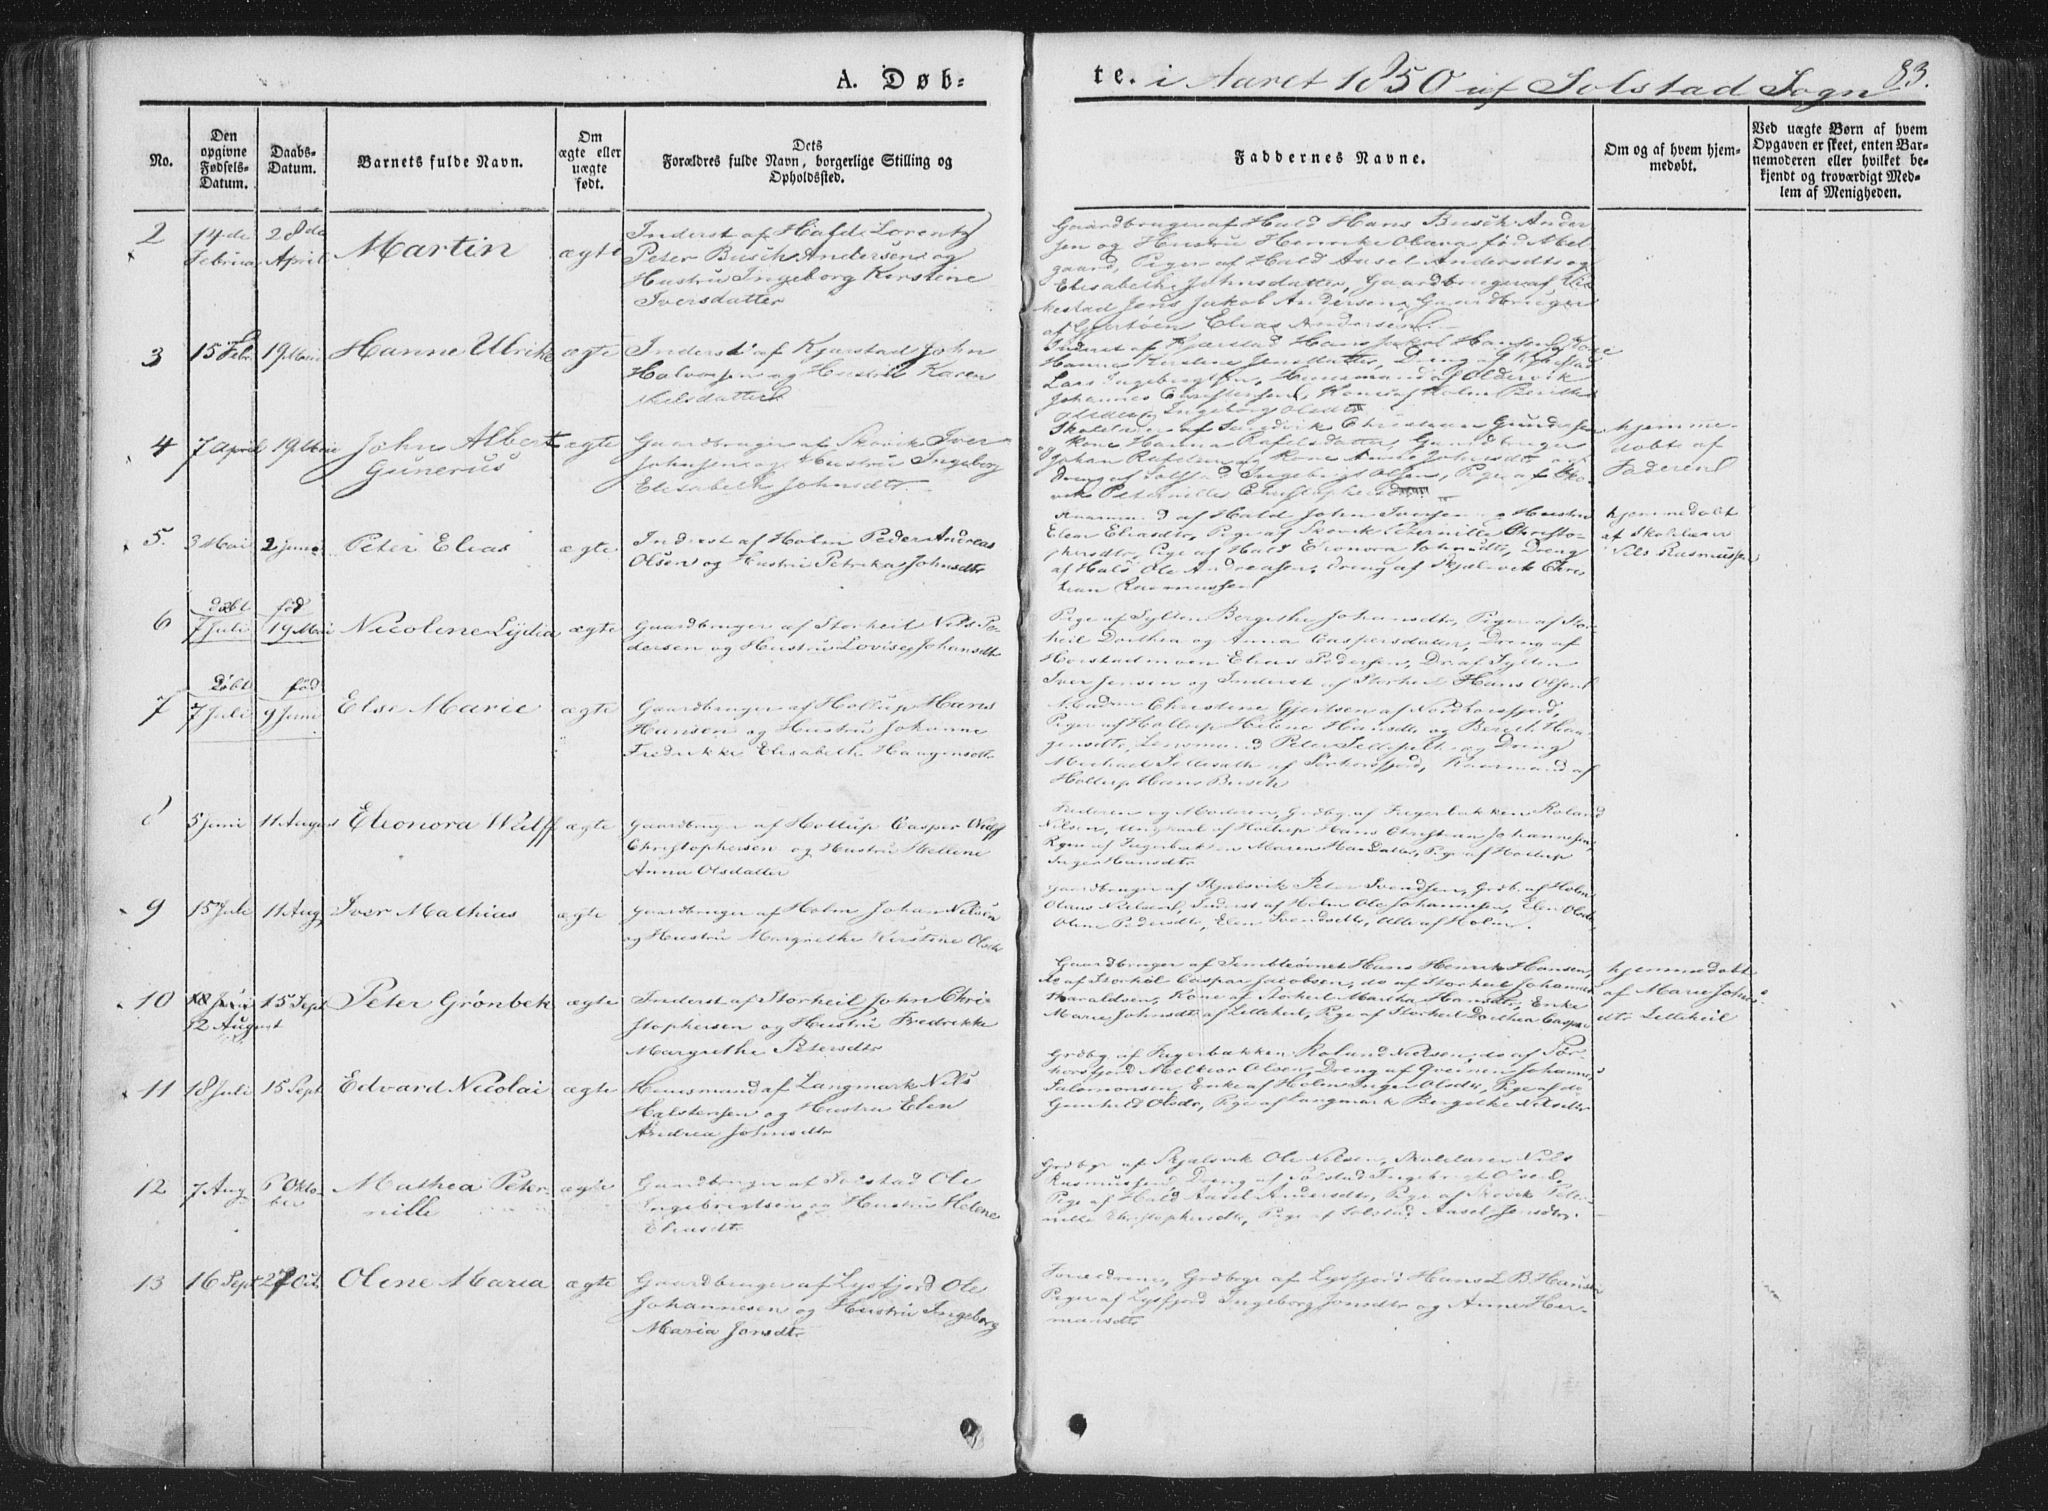 A. Døb-
te. i Aaret 1850 af Solstad Sogn 83.
No.
Den opgivne Fødsels-Datum.
Daabs-Datum.
Barnets fulde Navn.
Om ægte eller uægte født.
Dets Forældres fulde Navn, borgerlige Stilling og Opholdssted.
Faddernes Navne.
Om og af hvem hjem-medøbt.
Ved uægte Børn af hvem Opgaven er skeet, enten Bar-nemoderen eller hvilket be-kjendt og troværdigt Med-lem af Menigheden.
2 14de Februar 28de April Martin ægte
Inderst af Hald Lorentz
Peter Busch Andersen og
Hustru Ingeborg Kirstine
Iversdatter
Gaardbruger af Hald Hans Busch Ander-
sen og Hustru Henrike Olava fød Abel-
gaard, Piger af Hald Aasel Andersdtr og
Elisabeth Johnsdatter, Gaardbruger af
Jens Jakob Andersen, Gaardbruger
af Elias Andersen
3 15 Febr 19 Mai Hanne Ulrikke ægte
Inderst af Kjærstad John
Halvorsen og Hustru Karen
Nilsdatter
Inderst af Kjærstad Hans Jakob Hansen, Kone
Hanna Kirstine Jensdatter, Dreng af Kjærstad
Lars Ingebrigtsen, Huusmand af Oldervik
Johannes Christensen, Kone af Holm Berithe
Olsdtr, Ingeborg Olsdtr
4 7 April 19 Mai John Albert
Gunerus
ægte
Gaardbruger af Skovik Iver
Johnsen og Hustru Ingeborg
Elisabeth Johnsdtr
Skolelærer af Christian Gundersen
og Kone Hanna Rafelsdatter, Gaardbruger
Johan Rafelsen og Kone Anne Johnsdtr
Dreng af Solstad Ingebrigt Olsen, Pige af Sko-
vik Peternille Christophersdtr
hjemme-
døbt af
Faderen
5. 3 Mai 2 Juni Peter Elias ægte
Inderst af Holm Peder Andreas
Olsen og Hustru Petrika Johnsdtr
af Hald John Iversen og Hustru
Elen Eliasdtr, Pige af Skovik Peternille Christo-
phersdtr, Pige af Hald Elonora Johnsdtr, Dreng
af Hald Ole Andreasen, Dreng af Skjælsvik Chris-
tian Rasmussen
hjemmedøbt
af Skolelærer
Nils Rasmussen
6 døbt
7 Juli
fød
19 Mai
Nicoline Lydia ægte
Gaardbruger af Storheil Nils Pe-
dersen og Hustru Lovise Johansdtr
Pige af Sylten Bergithe Johansdtr, Piger af Stor-
heil Dorthea og Anna Caspersdatter, Dreng af
Horstadmoen Elias Pedersen, Dr. af Sylten
Iver Jensen og Inderst af Storheil Hans Olsen
7 døbt
7 Juli
fød
9 Juni
Else Marie ægte
Gaardbruger af Hollup Hans
Hansen og Hustru Johanne
Fredrikke Elisabeth Haagensdtr
Madm Christine Gjertsen af Nordhorsfjord,
Piger af Hollup Helene Hansdtr og Bereth Haa-
gensdtr, Lensmand Peter Sellesath og Dreng
Michael Sellesath af Sørhorsfjord, Kaarmand af
Hollup Hans Busch
8 5 Juni 11 August Eleonora Wulff ægte
Gaardbruger af Hollup Casper Wulff
Christophersen og Hustru Hellene
Anna Olsdatter
Faderen og Moderen, Grdbg. af Fagerbakken Roland
Nilsen, Ungkarl af Hollup Hans Christian Johannesen,
Pigen af Fagerbakken Maren Hansdatter, Pige af Hollup
Inger Hansdtr
9 15 Juli 11 Aug Iver Mathias ægte
Gaardbruger af Holm Johan Nilsen
og Hustru Margrethe Kirstine Olsdtr
Gaardbruger af Skjælsvik Peter Svendsen, Grdb. af Holm
Olaus Nielsen, Inderst af Holm Ole Johannesen, Elen Olsdtr
Oline Pedersdtr, Elen Svendsdtr, Alle af Holm.
10 18 Juni
12 August
15 Sept Peter Grønbek ægte
Inderst af Storheil John Chri-
stophersen og Hustru Fredrikke
Margrethe Petersdtr
Gaardbruger af Hans Henrik Hansen,
do af Storheil Caspar Jacobsen, do af Storheil Johannes
Haraldsen, Kone af Storheil Martha Hansdtr, Enke
Marie Johnsdtr af Lilleheil, Pige af Storheil Dorthea Caspersdtr
hjemmedøbt
af Marie Johns-
dtr Lilleheil
11 18 Juli 15 Sept Edvard Nicolai ægte
Huusmand af Langmark Nils
Halstensen og Hustru Elen
Andrea Johnsdtr
Grdbg af Fagerbakken Roland Nielsen, do af Sør-
horsfjord Melkior Olsen, Dreng af Johannes
Salomonsen, Enke af Holm Inger Olsdtr, Pige af do
Gunhild Olsdtr, Pige af Langmark Bergithe Nilsdtr
12 7 Aug Okto-
ber
Mathea Peter-
nille
ægte
Gaardbruger af Solstad Ole
Ingebrigtsen og Hustru Helene
Eliasdtr
Grdbgr af Skjælsvik Ole Nilsen, Skolelærer Nils
Rasmussen, Dreng af Solstad Ingebrigt Olsen,
Pige af Hald Aasel Andersdtr, Pige af Skovik Peter-
nille Christophersdtr, Pige af Solstad Aasel Jonsdtr.
13 16 Sept 27 Oct. Oline Maria ægte
Gaardbruger af Lysfjord Ole
Johannesen og Hustru Ingeborg
Maria Jonsdtr
Forældrene, Grdbgr af Lysfjord Hans L. B. Hansen
Piger af Lysfjord Ingeborg Jonsdtr og Anne Her-
mansdtr